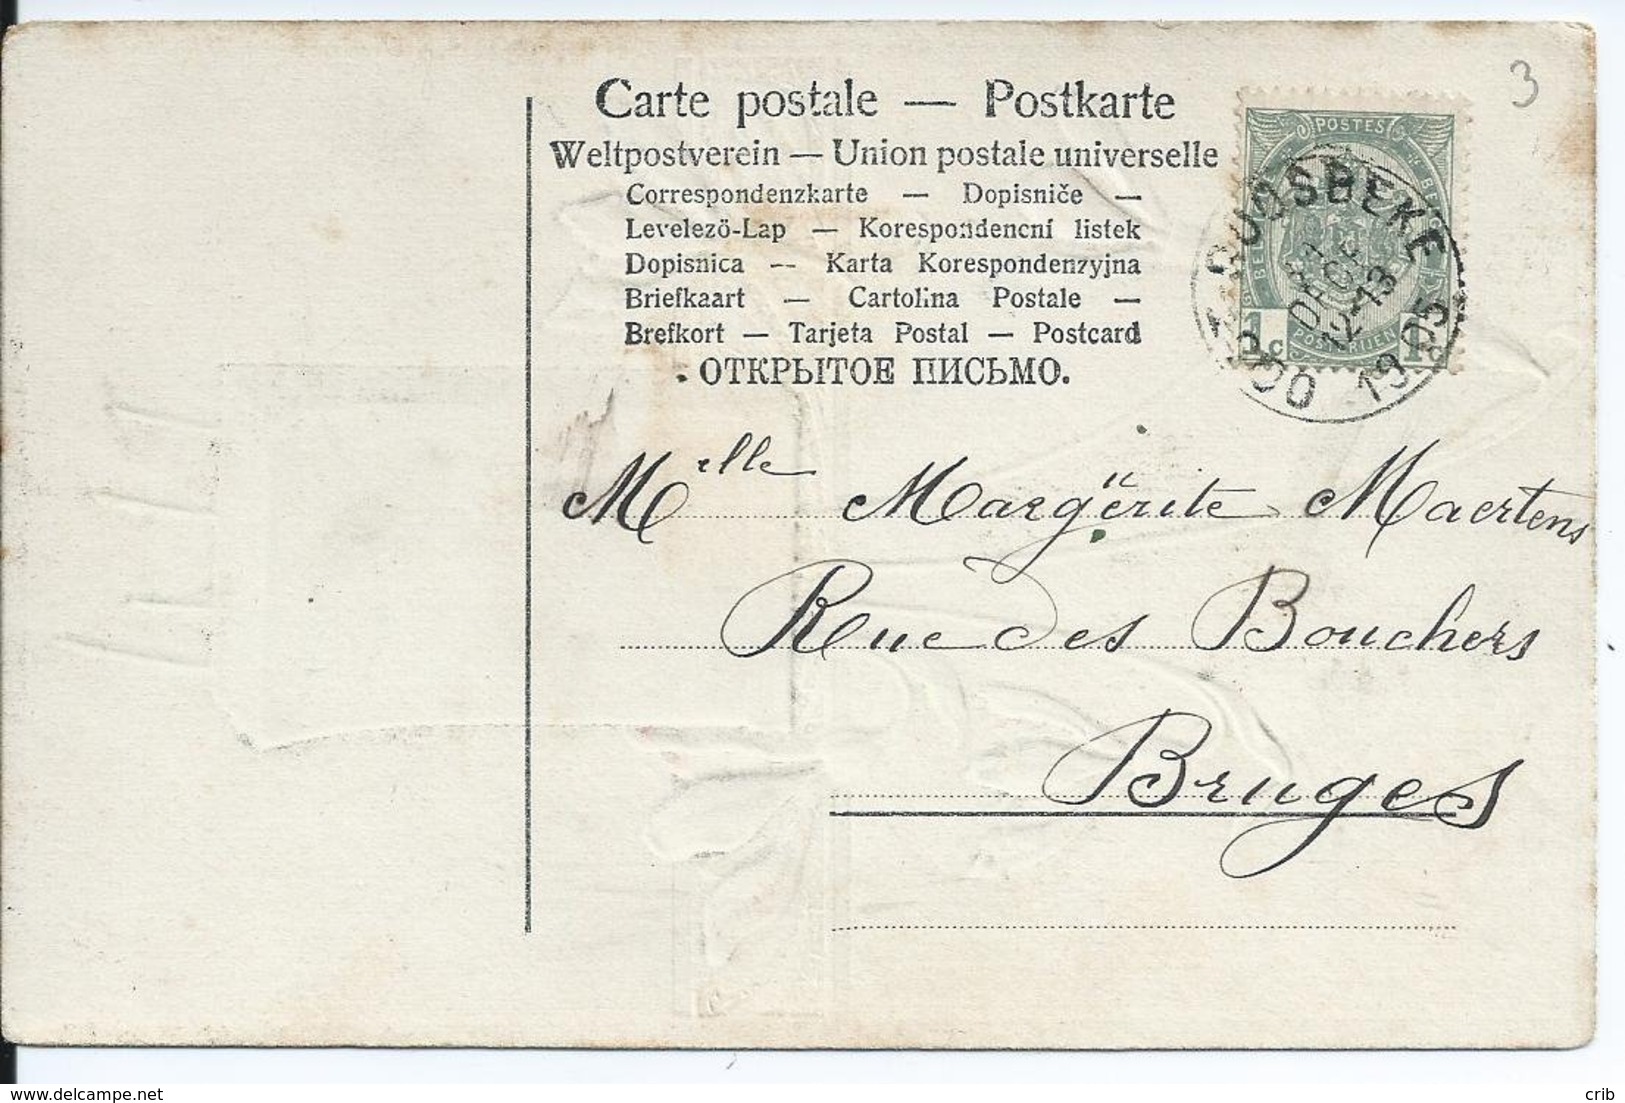 3
Carte postale — Postkarte
Weltpostverein — Union postale universelle
Correspondenzkarte — Dopisniče —
Levelező-Lap — Korespondencní listek
Dopisnica — Karta Korespondenzyjna
Briefkaart — Cartolina Postale —
Brefkort — Tarjeta Postal — Postcard
ОТКРЫТОЕ ПИСЬМО.
POSTES
12-13
1905
1c
Melle Margüerite Maertens
Rue des Bouchers
Bruges
delcampe.net
crib